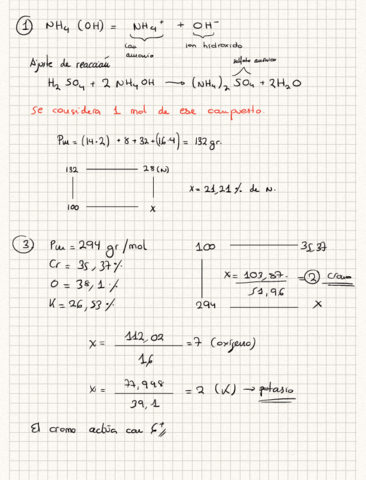 ① NH4 (OH) = NH4+ + OH-
ion amonio
ion hidroxido
Ajuste de reacción
sulfato amónico
H2 SO4 + 2 NH4 OH → (NH4)2 SO4 + 2H2O
Se considera 1 mol de ese compuesto.
Pm = (14·2) + 8 + 32 + (16·4) = 132 gr.
132 28 (N)
X = 21,21 % de N.
100 X
③ Pm = 294 gr/mol
100 35,37
Cr = 35,37 %
O = 38,1 %
K = 26,53 %
X = 103,87 / 51,96 = 2 Cromo
294 X
X = 112,02 / 16 = 7 (oxígeno)
X = 77,998 / 39,1 = 2 (K) → potasio
El cromo actúa con 6+